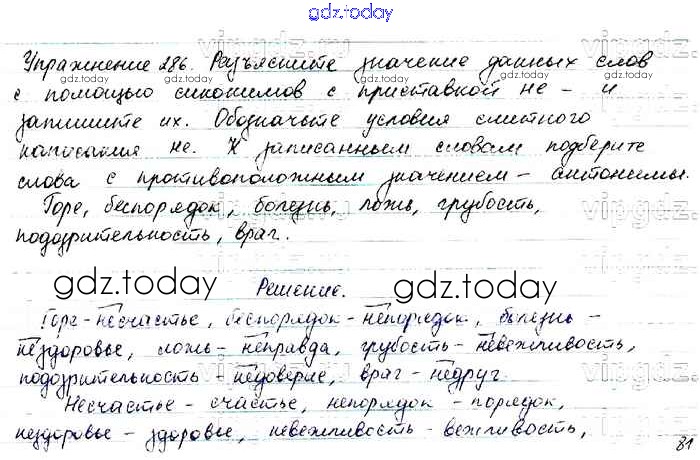 gdz.today
Упражнение 286. Разъясните значение данных слов
с помощью синонимов с приставкой не- и
запишите их. Обозначьте условия слитного
написания не. К записанным словам подберите
слова с противоположным значением - антонимы.
Горе, беспорядок, болезнь, ложь, грубость,
подозрительность, враг.
gdz.today
Решение.
gdz.today
Горе - несчастье, беспорядок - непорядок, болезнь -
нездоровье, ложь - неправда, грубость - невежливость,
подозрительность - недоверие, враг - недруг.
Несчастье - счастье, непорядок - порядок,
нездоровье - здоровье, невежливость - вежливость,
81